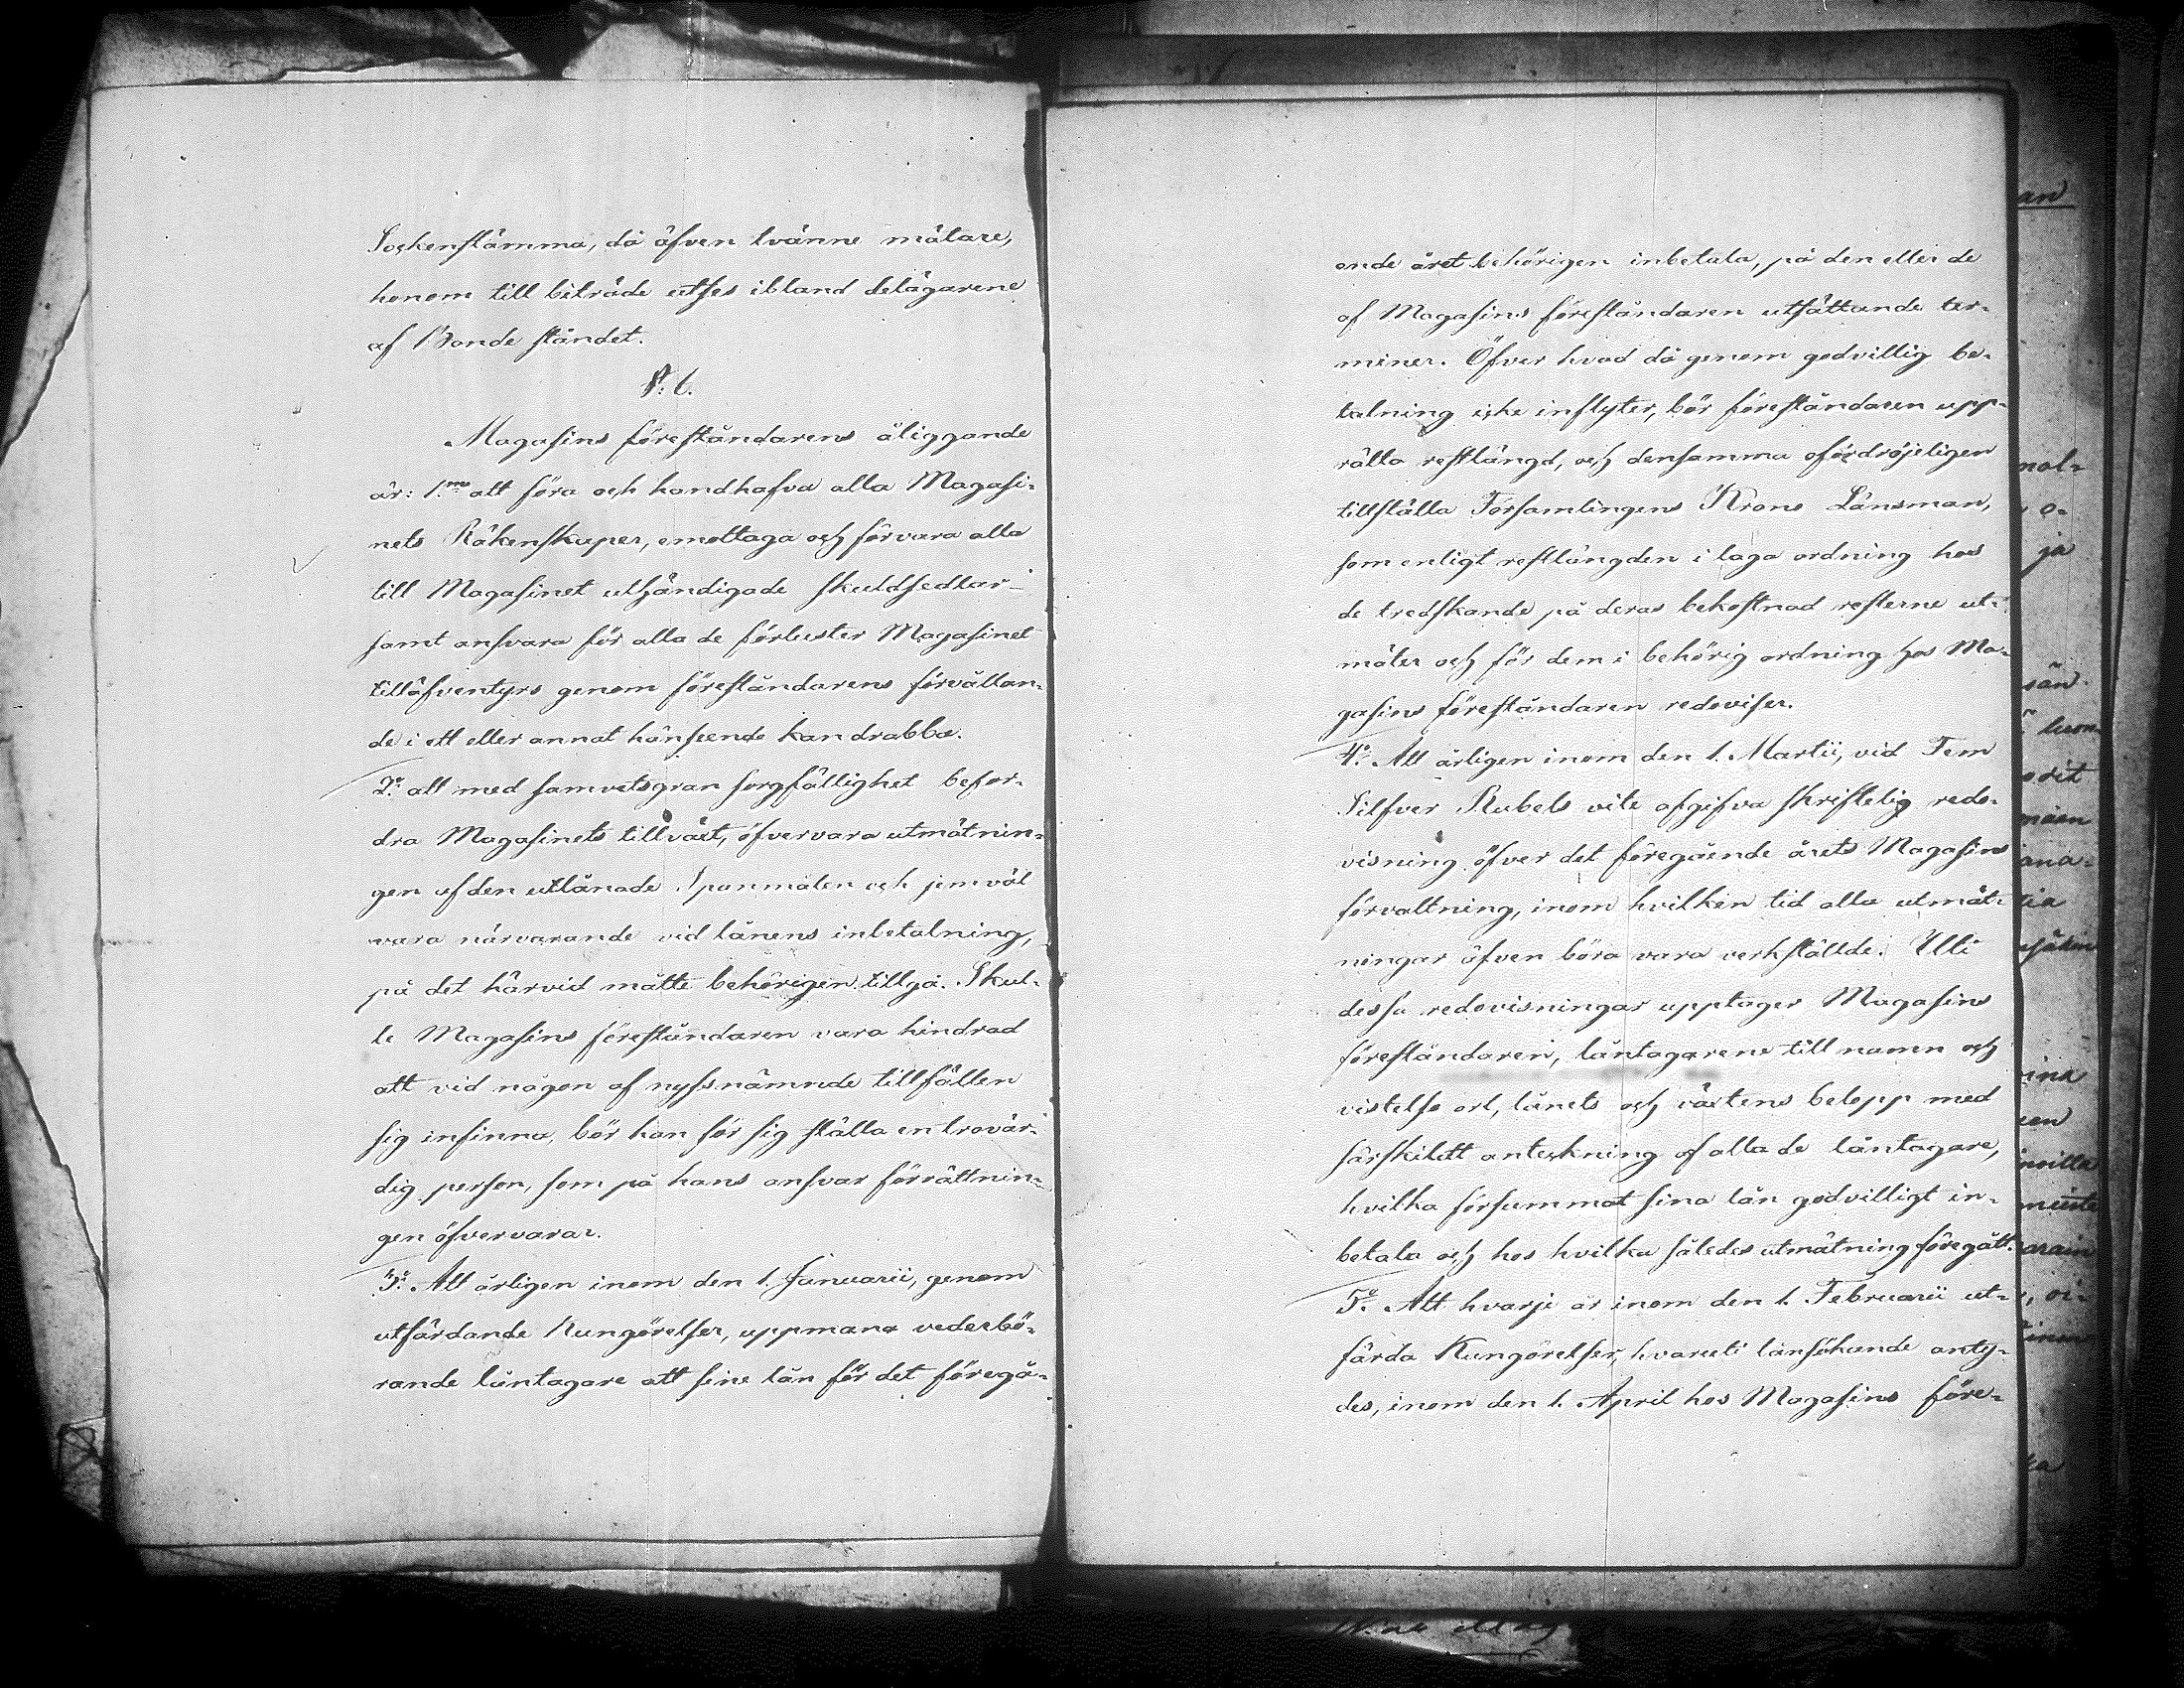 Sockenstämma, då äfven tvänne mätare,
honom till biträde utses ibland delägarene
af Bonde ståndet.
§. 6.
Magasins föreståndarens åliggande
är: 1.mo att föra och handhafva alla Magasi-
nets Räkenskaper, emottaga och förvara alla
till Magasinet uthändigade skuldsedlar
samt ansvara för alla de förluster Magasinet
tilläfventyrs genom föreståndarens förvållan-
de i ett eller annat hänseende kan drabba.
2.o att med samvetsgran sorgfällighet befor-
dra Magasinets tillväxt, öfvervara utmätnin-
gen af den utlånade Spanmålen och jemväl
vara närvarande vid lånens inbetalning,
på det härvid måtte behörigen tillgå. Skul-
le Magasins föreståndaren vara hindrad
att vid någon af nyssnämnde tillfällen
sig infinna, bör han för sig ställa en trovär-
dig person, som på hans ansvar förrättnin-
gen öfvervarar.
3.o Att årligen inom den 1. Januarii, genom
utfärdande Kungörelser, uppmana vederbö-
rande låntagare att sine lån för det föregå-
ende året behörigen inbetala, på den eller de
af Magasins föreståndaren utsättande ter-
miner. Öfver hvad då genom godvillig be-
talning icke inflyter, bör föreståndaren upp-
rätta restlängd, och densamma ofördröjeligen
tillställa Församlingens Krono Länsman,
som enligt restlängden i laga ordning hos
de tredskande på deras bekostnad resterne ut-
mäter och för dem i behörig ordning hos Ma-
gasins föreståndaren redoviser.
4.o Att årligen inom den 1. Martii, vid Fem
Silfver Rubels vite afgifva skriftelig redo-
visning öfver det föregående årets Magasins
förvaltning, inom hvilken tid alla utmät-
ningar äfven böra vara verkställde. Uti
dessa redovisningar upptager Magasins
föreståndaren, låntagarene till namn och
vistelse ort, lånets och växtens belopp med
särskildt anteckning af alla de låntagare,
hvilka försummat sina lån godvilligt in-
betala och hos hvilka således utmätning föregått.
5.o Att hvarje år inom den 1. Februarii ut-
färda Kungörelser, hvaruti lånsökande anty-
des, inom den 1. April hos Magasins före-